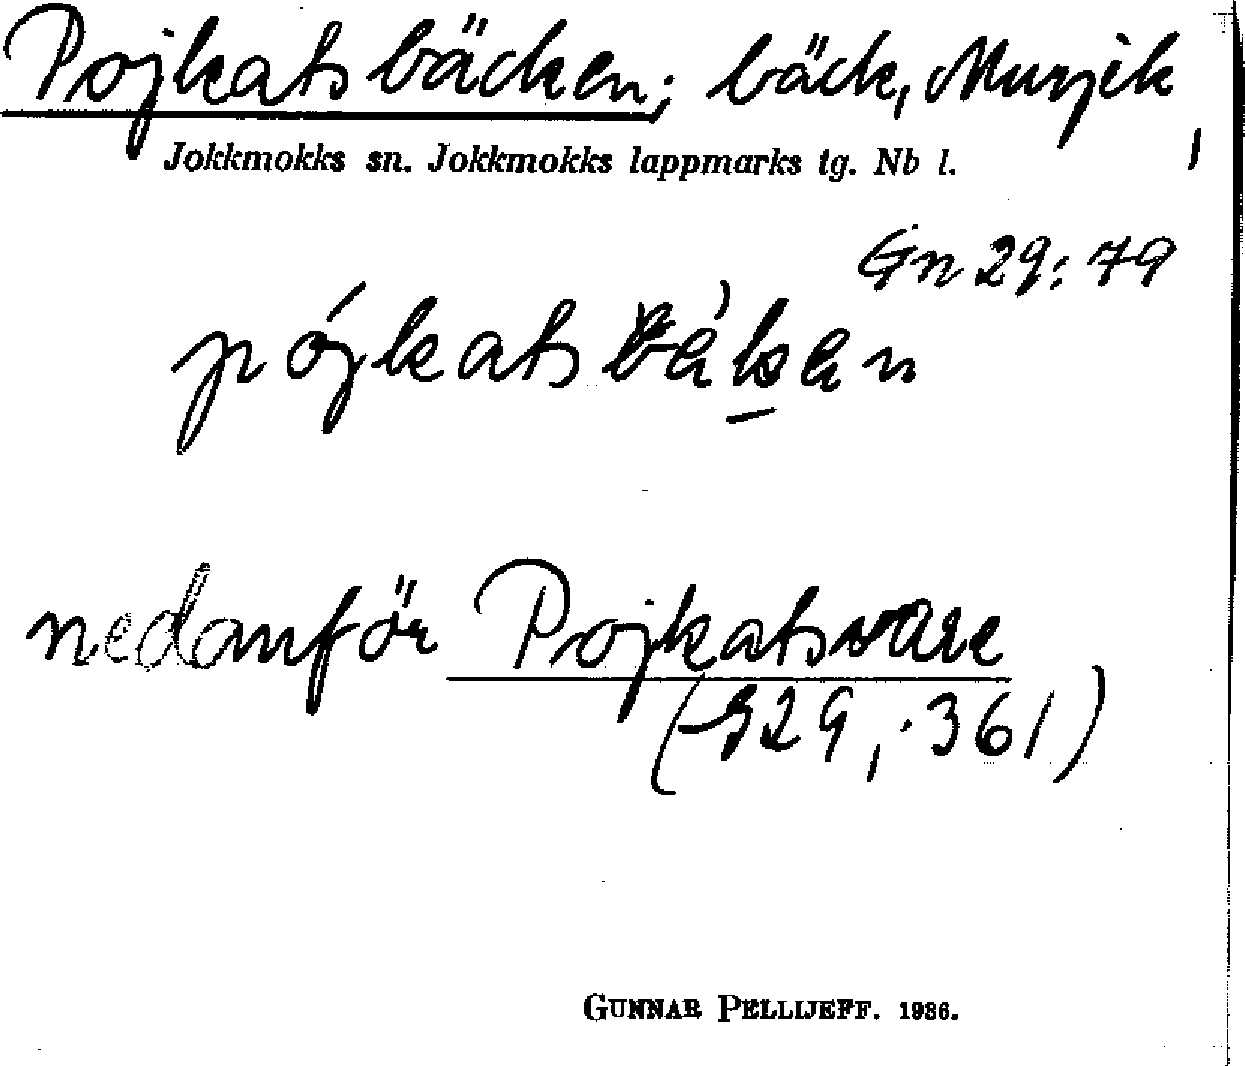 Pojkatsbäcken; bäck, Murjek,
Jokkmokks sn. Jokkmokks lappmarks tg. Nb l.
Gn 29: 79
pójkatsbäḱ̠en
nedanför Pojkatsvare
(S29, 361)
GUNNAR PELLIJEFF. 1936.